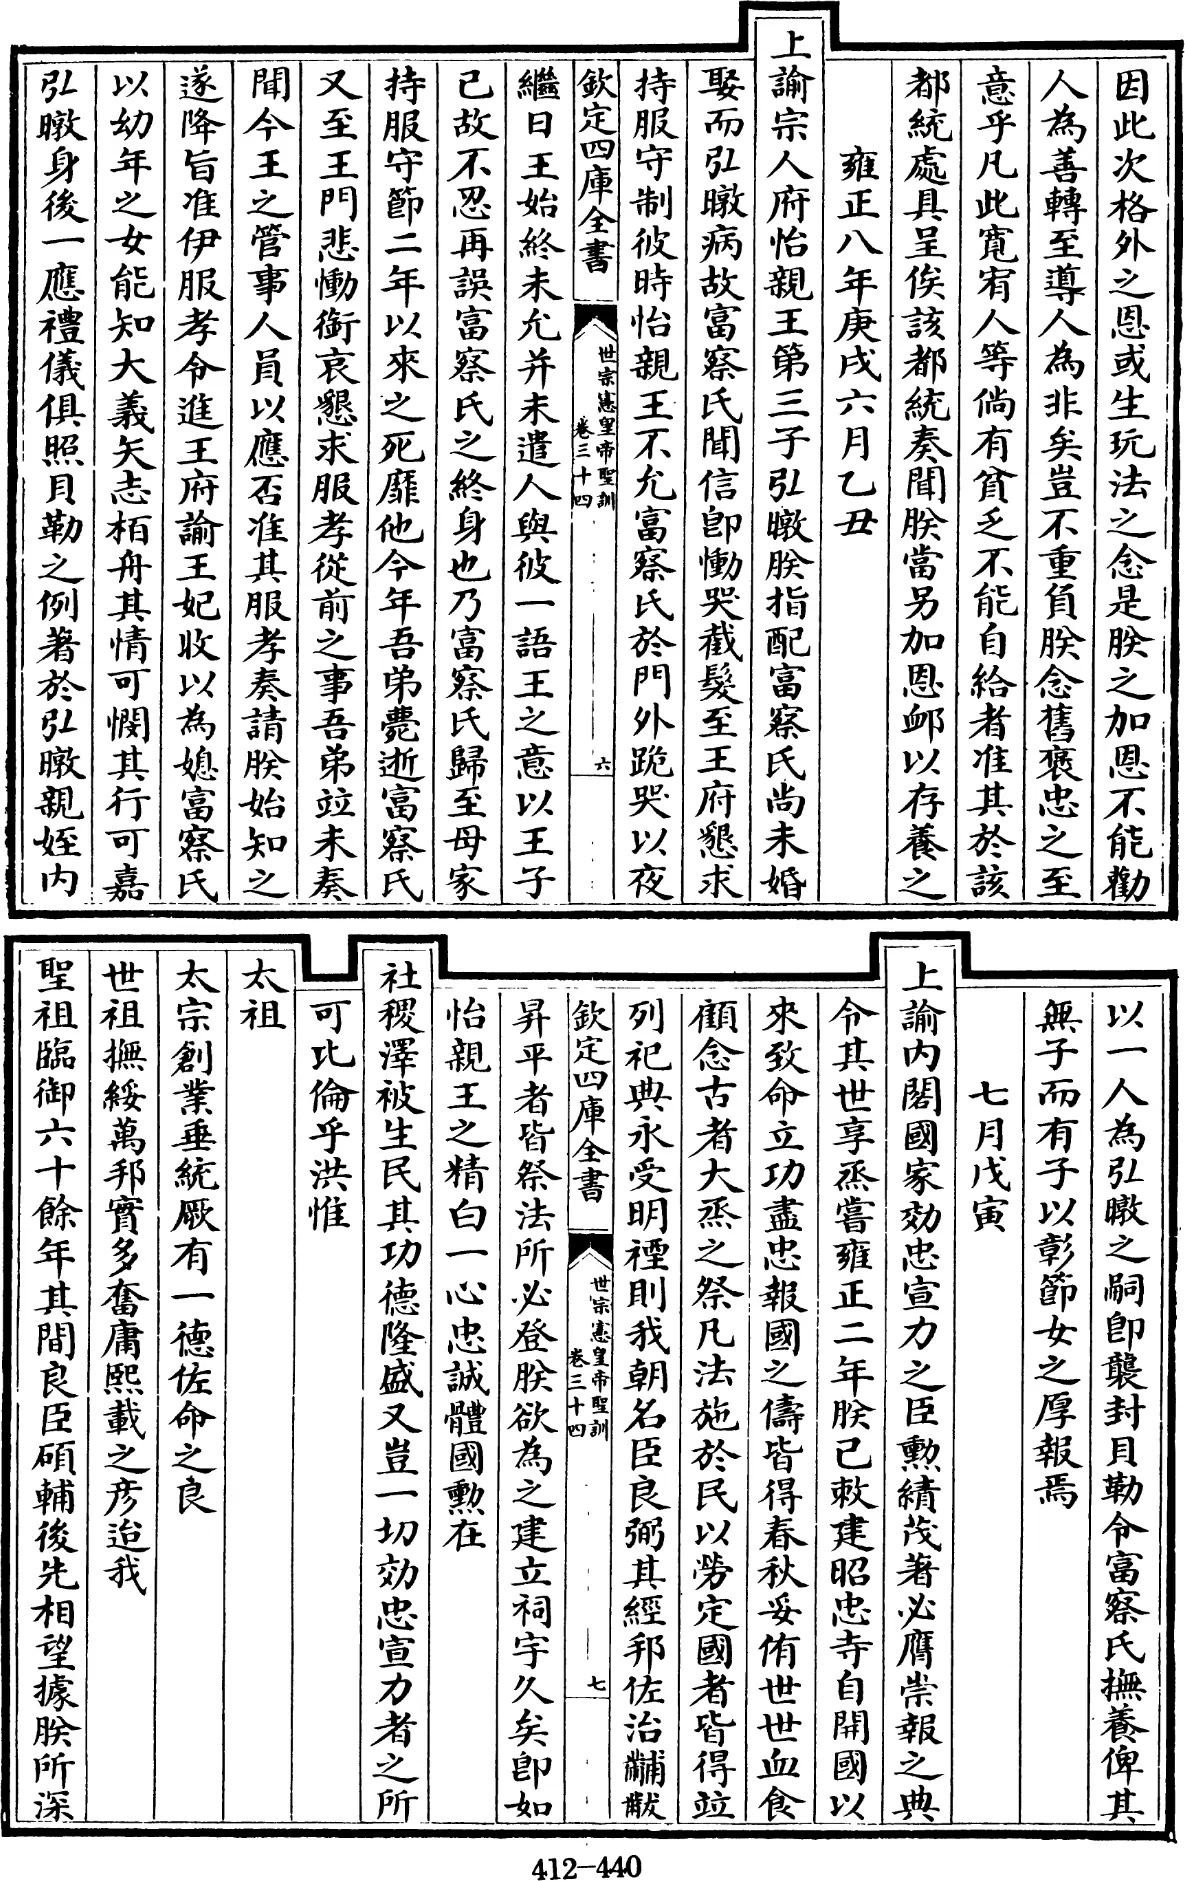 因此次格外之恩或生玩法之念是朕之加恩不能勸
人為善轉至導人為非矣豈不重負朕念舊褒忠之至
意乎凡此寬宥人等倘有貧乏不能自給者准其於該
都統處具呈俟該都統奏聞朕當另加恩卹以存養之
雍正八年庚戌六月乙丑
上諭宗人府怡親王第三子弘暾朕指配富察氏尚未婚
娶而弘暾病故富察氏聞信即慟哭截髮至王府懇求
持服守制彼時怡親王不允富察氏於門外跪哭以夜
欽定四庫全書
世宗憲皇帝聖訓
卷三十四
六
繼日王始終未允并未遣人與彼一語王之意以王子
已故不忍再誤富察氏之終身也乃富察氏歸至母家
持服守節二年以來之死靡他今年吾弟薨逝富察氏
又至王門悲慟銜哀懇求服孝從前之事吾弟竝未奏
聞今王之管事人員以應否准其服孝奏請朕始知之
遂降旨准伊服孝令進王府諭王妃收以為媳富察氏
以幼年之女能知大義矢志栢舟其情可憫其行可嘉
弘暾身後一應禮儀俱照貝勒之例著於弘暾親姪内
以一人為弘暾之嗣即襲封貝勒令富察氏撫養俾其
無子而有子以彰節女之厚報焉
七月戊寅
上諭内閣國家効忠宣力之臣勲績茂著必膺崇報之典
令其世享烝嘗雍正二年朕已敕建昭忠寺自開國以
來致命立功盡忠報國之儔皆得春秋妥侑世世血食
顧念古者大烝之祭凡法施於民以勞定國者皆得竝
列祀典永受明禋則我朝名臣良弼其經邦佐治黼黻
欽定四庫全書
世宗憲皇帝聖訓
卷三十四
七
昇平者皆祭法所必登朕欲為之建立祠宇久矣即如
怡親王之精白一心忠誠體國勲在
社稷澤被生民其功德隆盛又豈一切効忠宣力者之所
可比倫乎洪惟
太祖
太宗創業垂統厥有一德佐命之良
世祖撫綏萬邦實多奮庸熙載之彦迨我
聖祖臨御六十餘年其間良臣碩輔後先相望據朕所深
412-440